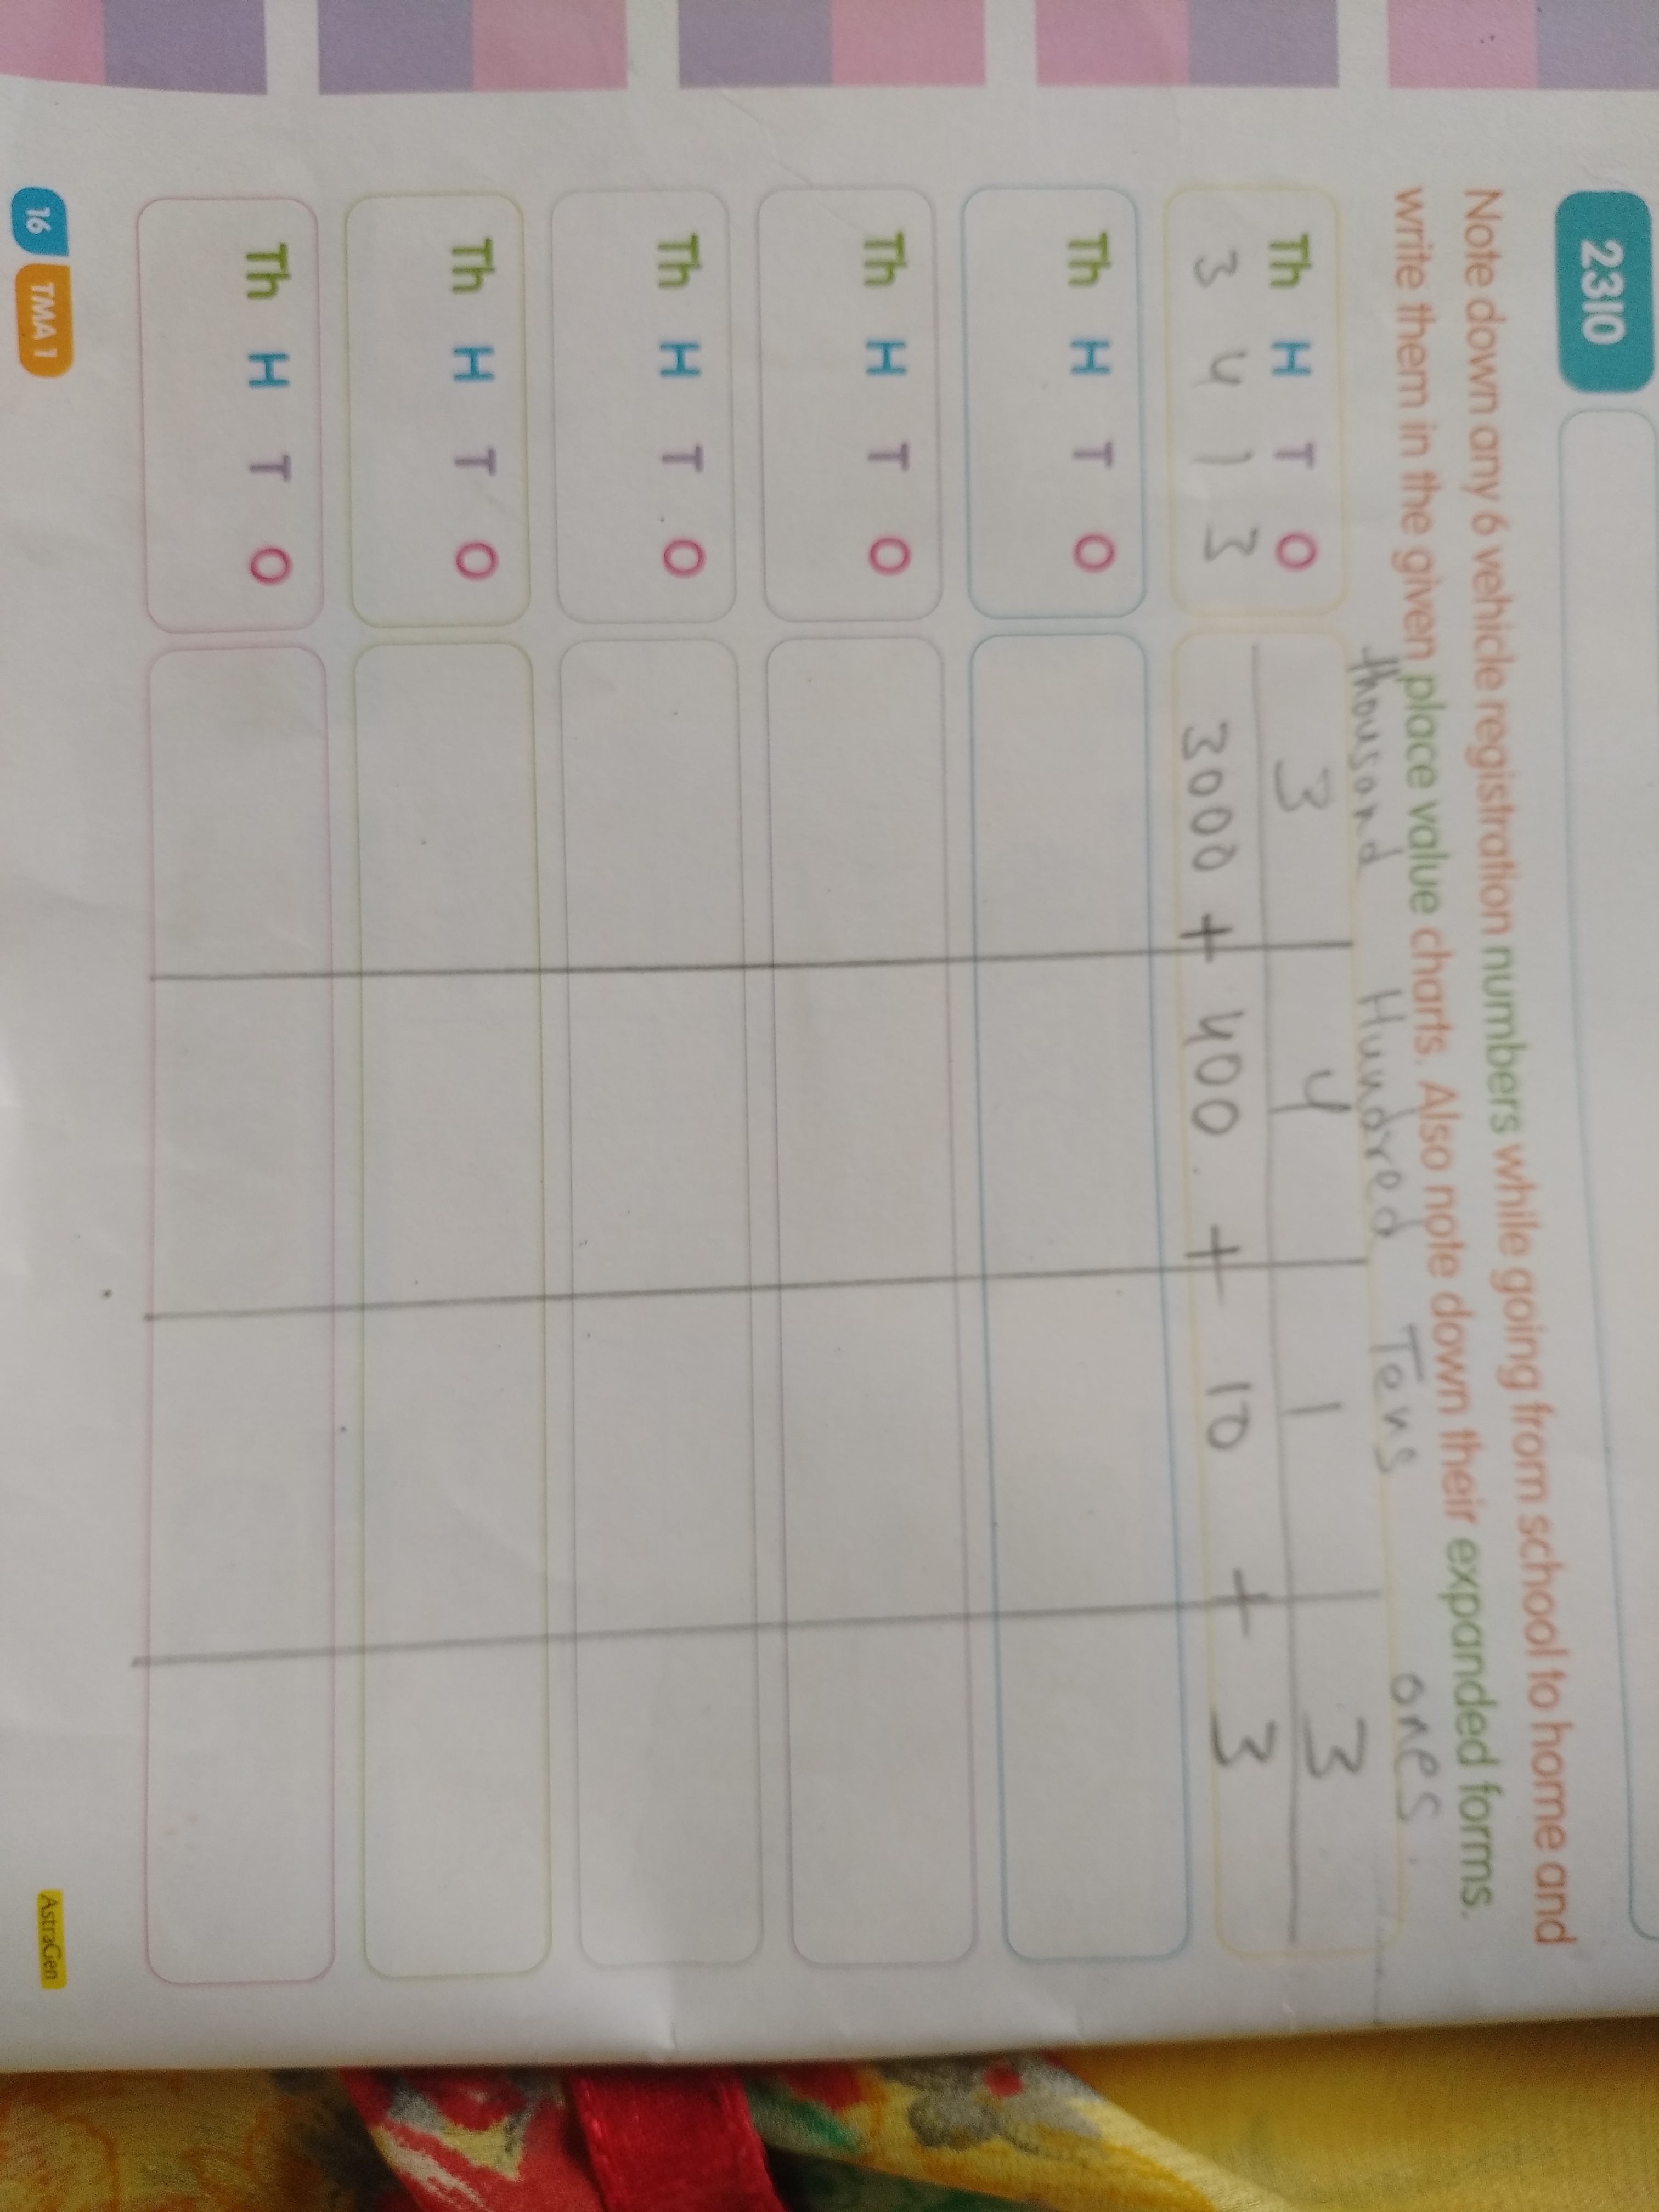 2310
Note down any 6 vehicle registration numbers while going from school to home and
write them in the given place value charts. Also note down their expanded forms.
thousand Hundred Tens ones
Th H T O 3 4 1 3
3 4 1 3 3000 + 400 + 10 + 3
Th H T O
Th H T O
Th H T O
Th H T O
Th H T O
16 TMA 1 AstraGen